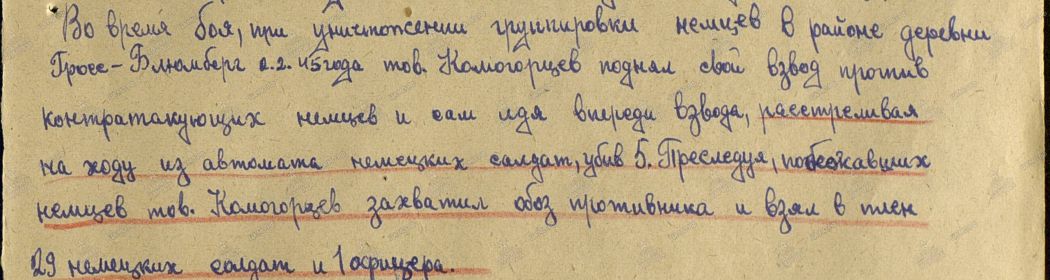 Во время боя, при уничтожении группировки немцев в районе деревни
Гросс-Блюмберг 2.2.45 года тов. Комогорцев поднял свой взвод против
контратакующих немцев и сам идя впереди взвода, расстреливая
на ходу из автомата немецких солдат, убив 5. Преследуя, побежавших
немцев тов. Комогорцев захватил обоз противника и взял в плен
29 немецких солдат и 1 офицера.